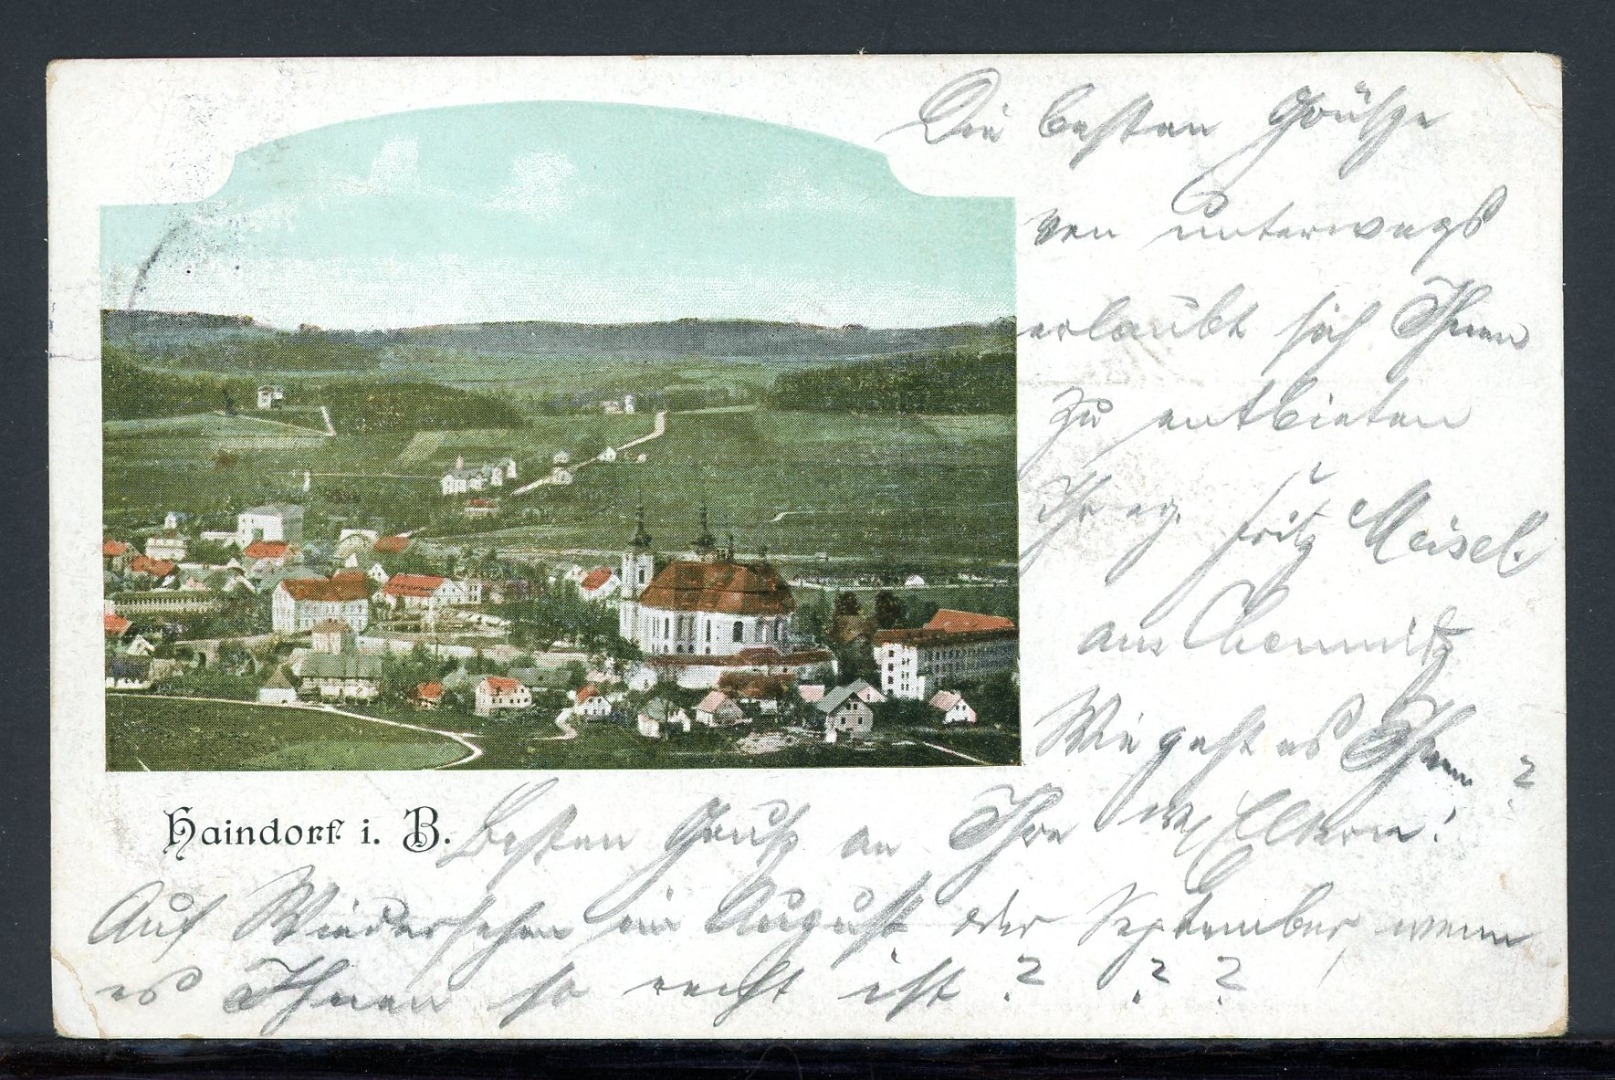 Die besten Grüße
von unterwegs
erlaubt sich Ihnen
zu entbieten
Ihr erg. Fritz Meisel.
aus Chemnitz
Wie geht es Ihnen ?
Haindorf i. B.
Besten Gruß an Ihre w. Eltern!
Auf Wiedersehen im August oder September, wenn
es Ihnen so recht ist ? ? ?